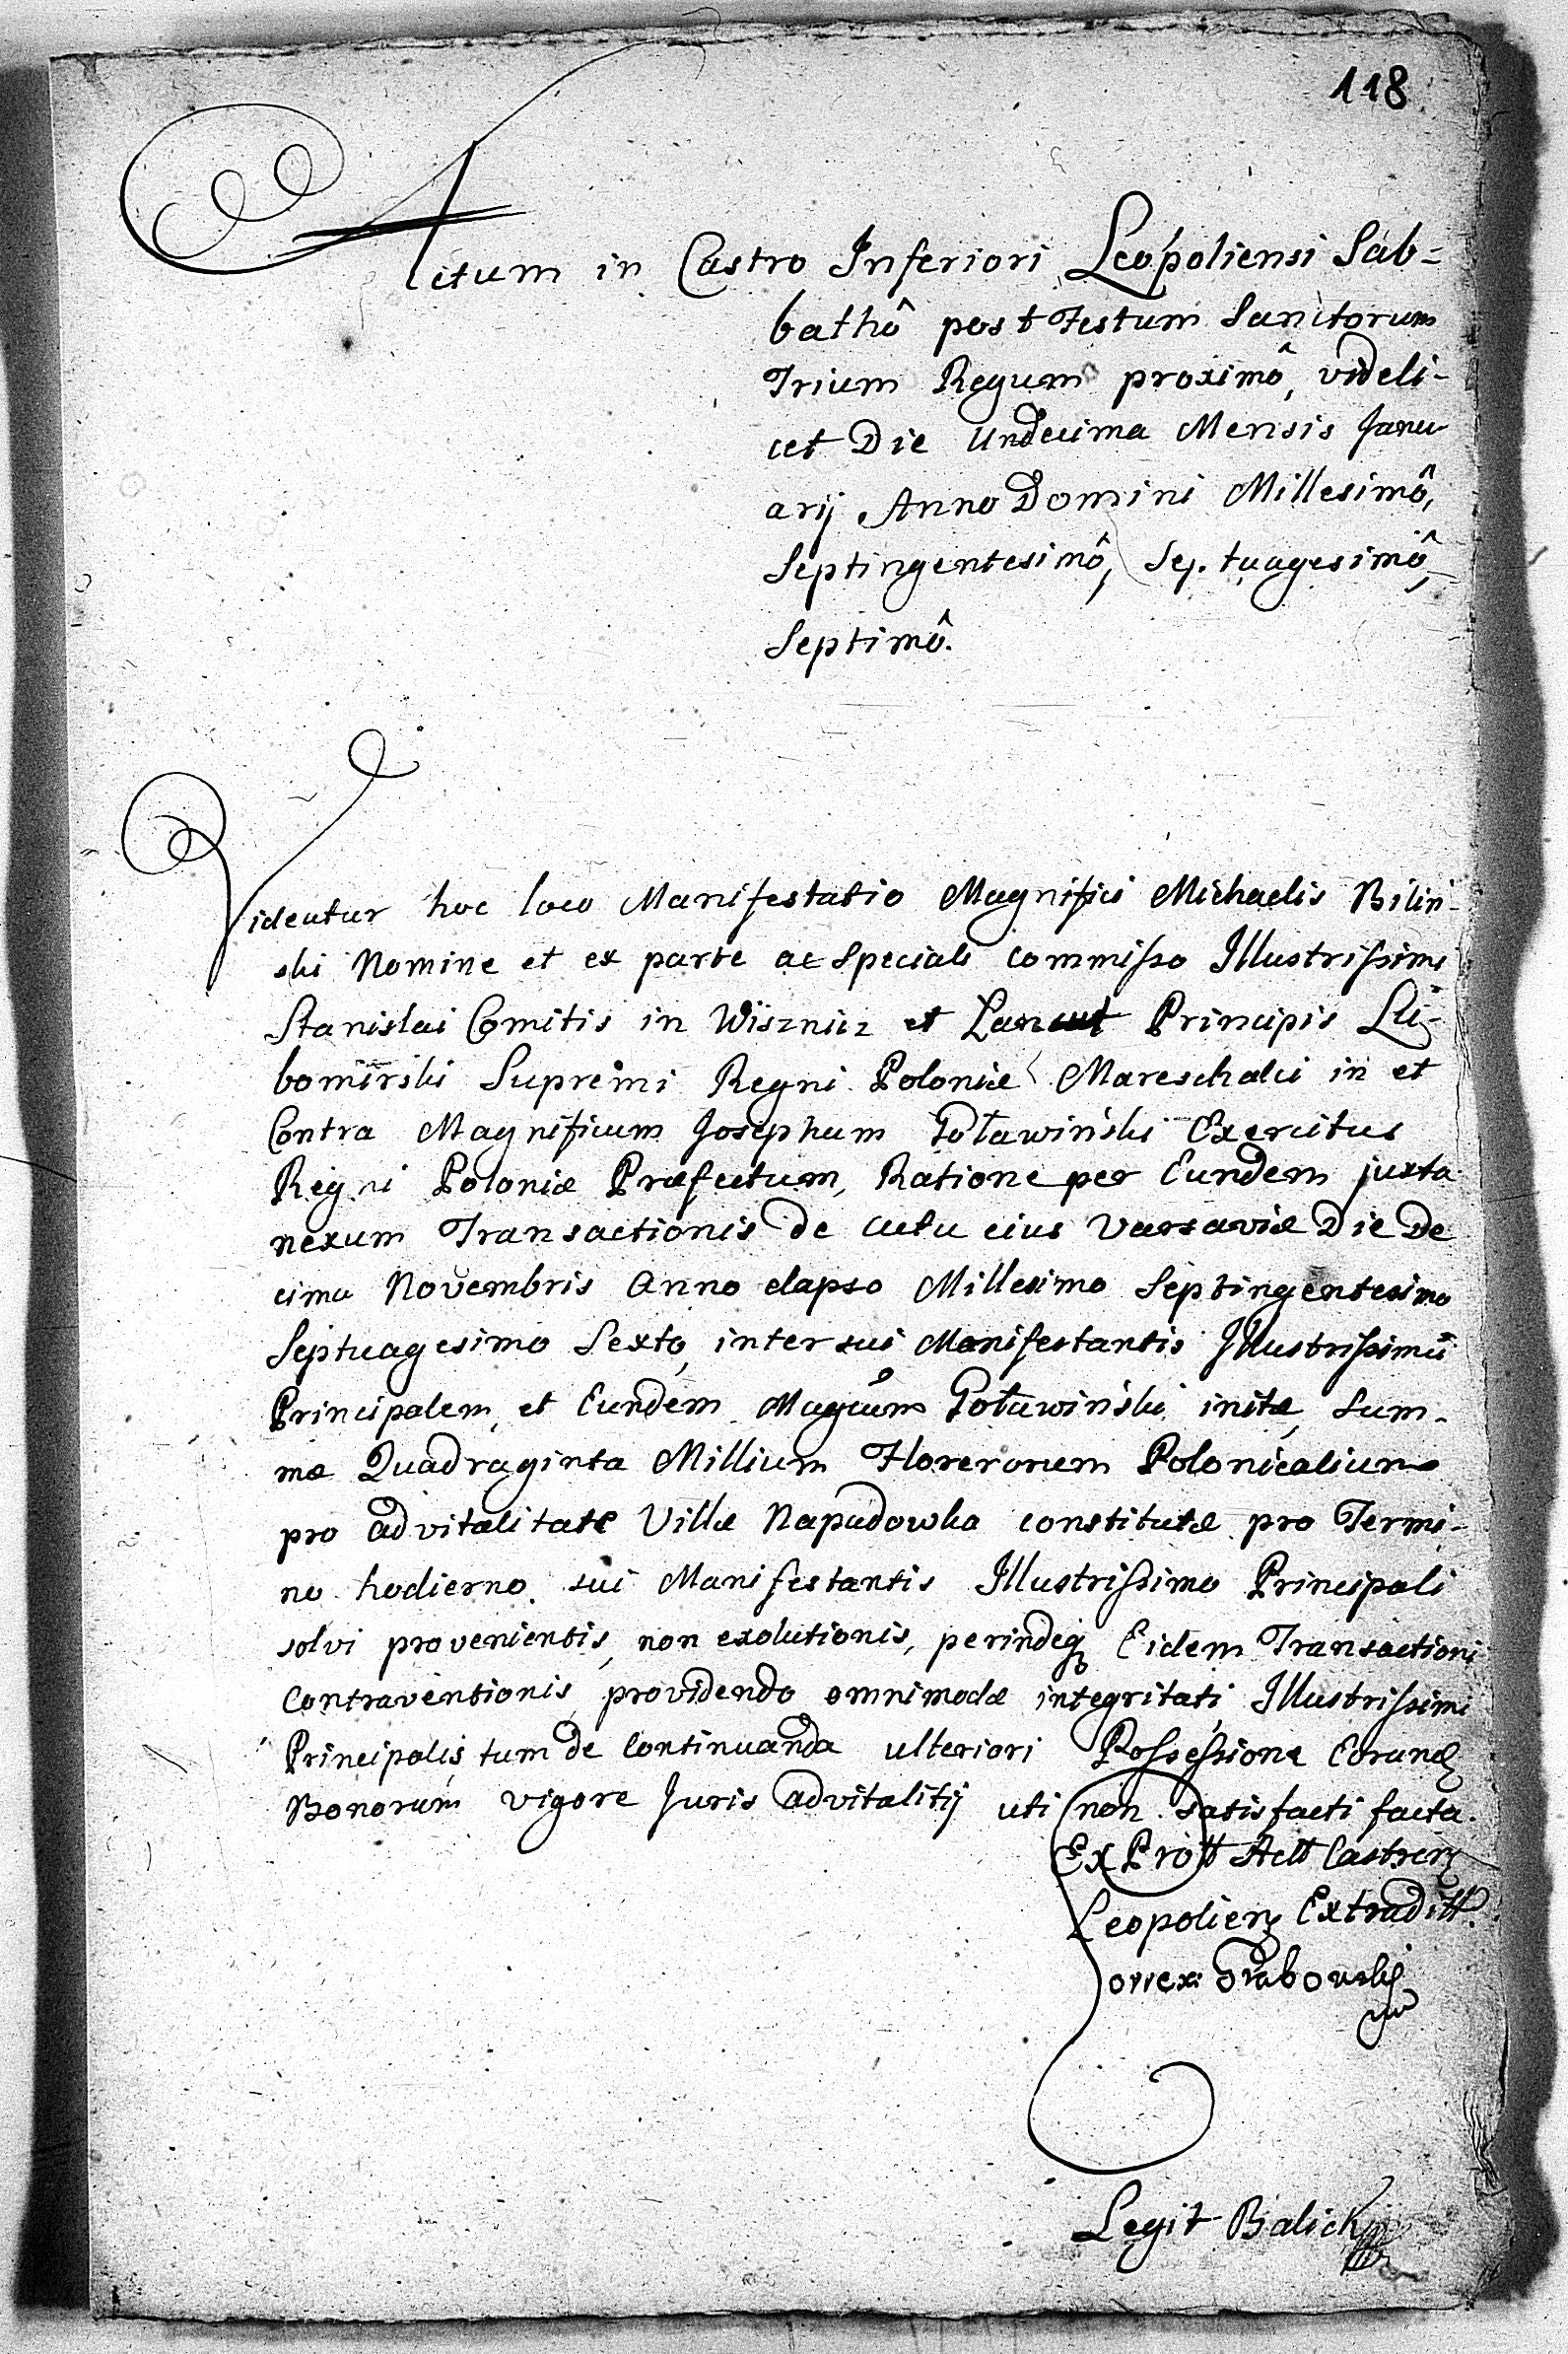 118
Actum in Castro Inferiori Leopoliensi Sab-
bathô post Festum Sanctorum
Trium Regum proximô, videli-
cet Die Undecima Mensis Janu
arij Anno Domini Millesimô,
Septingentesimô, Septuagesimô,
Septimô.
Videatur hoc loco Manifestatio Magnifici Michaelis Bilin-
ski Nomine et ex parte ac speciali commisso Illustrissimi
Stanislai Comitis in Wisznicz et Lancut Principis Lu-
bomirski Supremi Regni Poloniæ Mareschalci in et
Contra Magnificum Josephum Goławiński Exercitus
Regni Poloniæ Præfectum, Ratione per Eundem juxta
nexum Transactionis de actu eius Varsaviæ Die De
cima Novembris Anno elapso Millesimo Septingentesimo
Septuagesimo Sexto, inter sui Manifestantis Illustrissimū
Principalem, et Eundem Magcum Goławiński initæ, Sum-
mæ Quadraginta Millium Florenorum Polonicalium
pro advitalitate Villæ Napadowka constitutæ pro Termi-
no hodierno sui Manifestantis Illustrissimo Principali
solvi provenientis, non exolutionis, perindeq Eidem Transactioni
Contraventionis, providendo omnimodæ integritati Illustrissimi
Principalis tum de Continuanda ulteriori Possessione Eorund
Bonorum vigore Juris advitalitij uti non satisfacti facta.
Ex Prott Actt Castren
Leopolien Extraditt
Correx: Grabowski
Legit Balicki